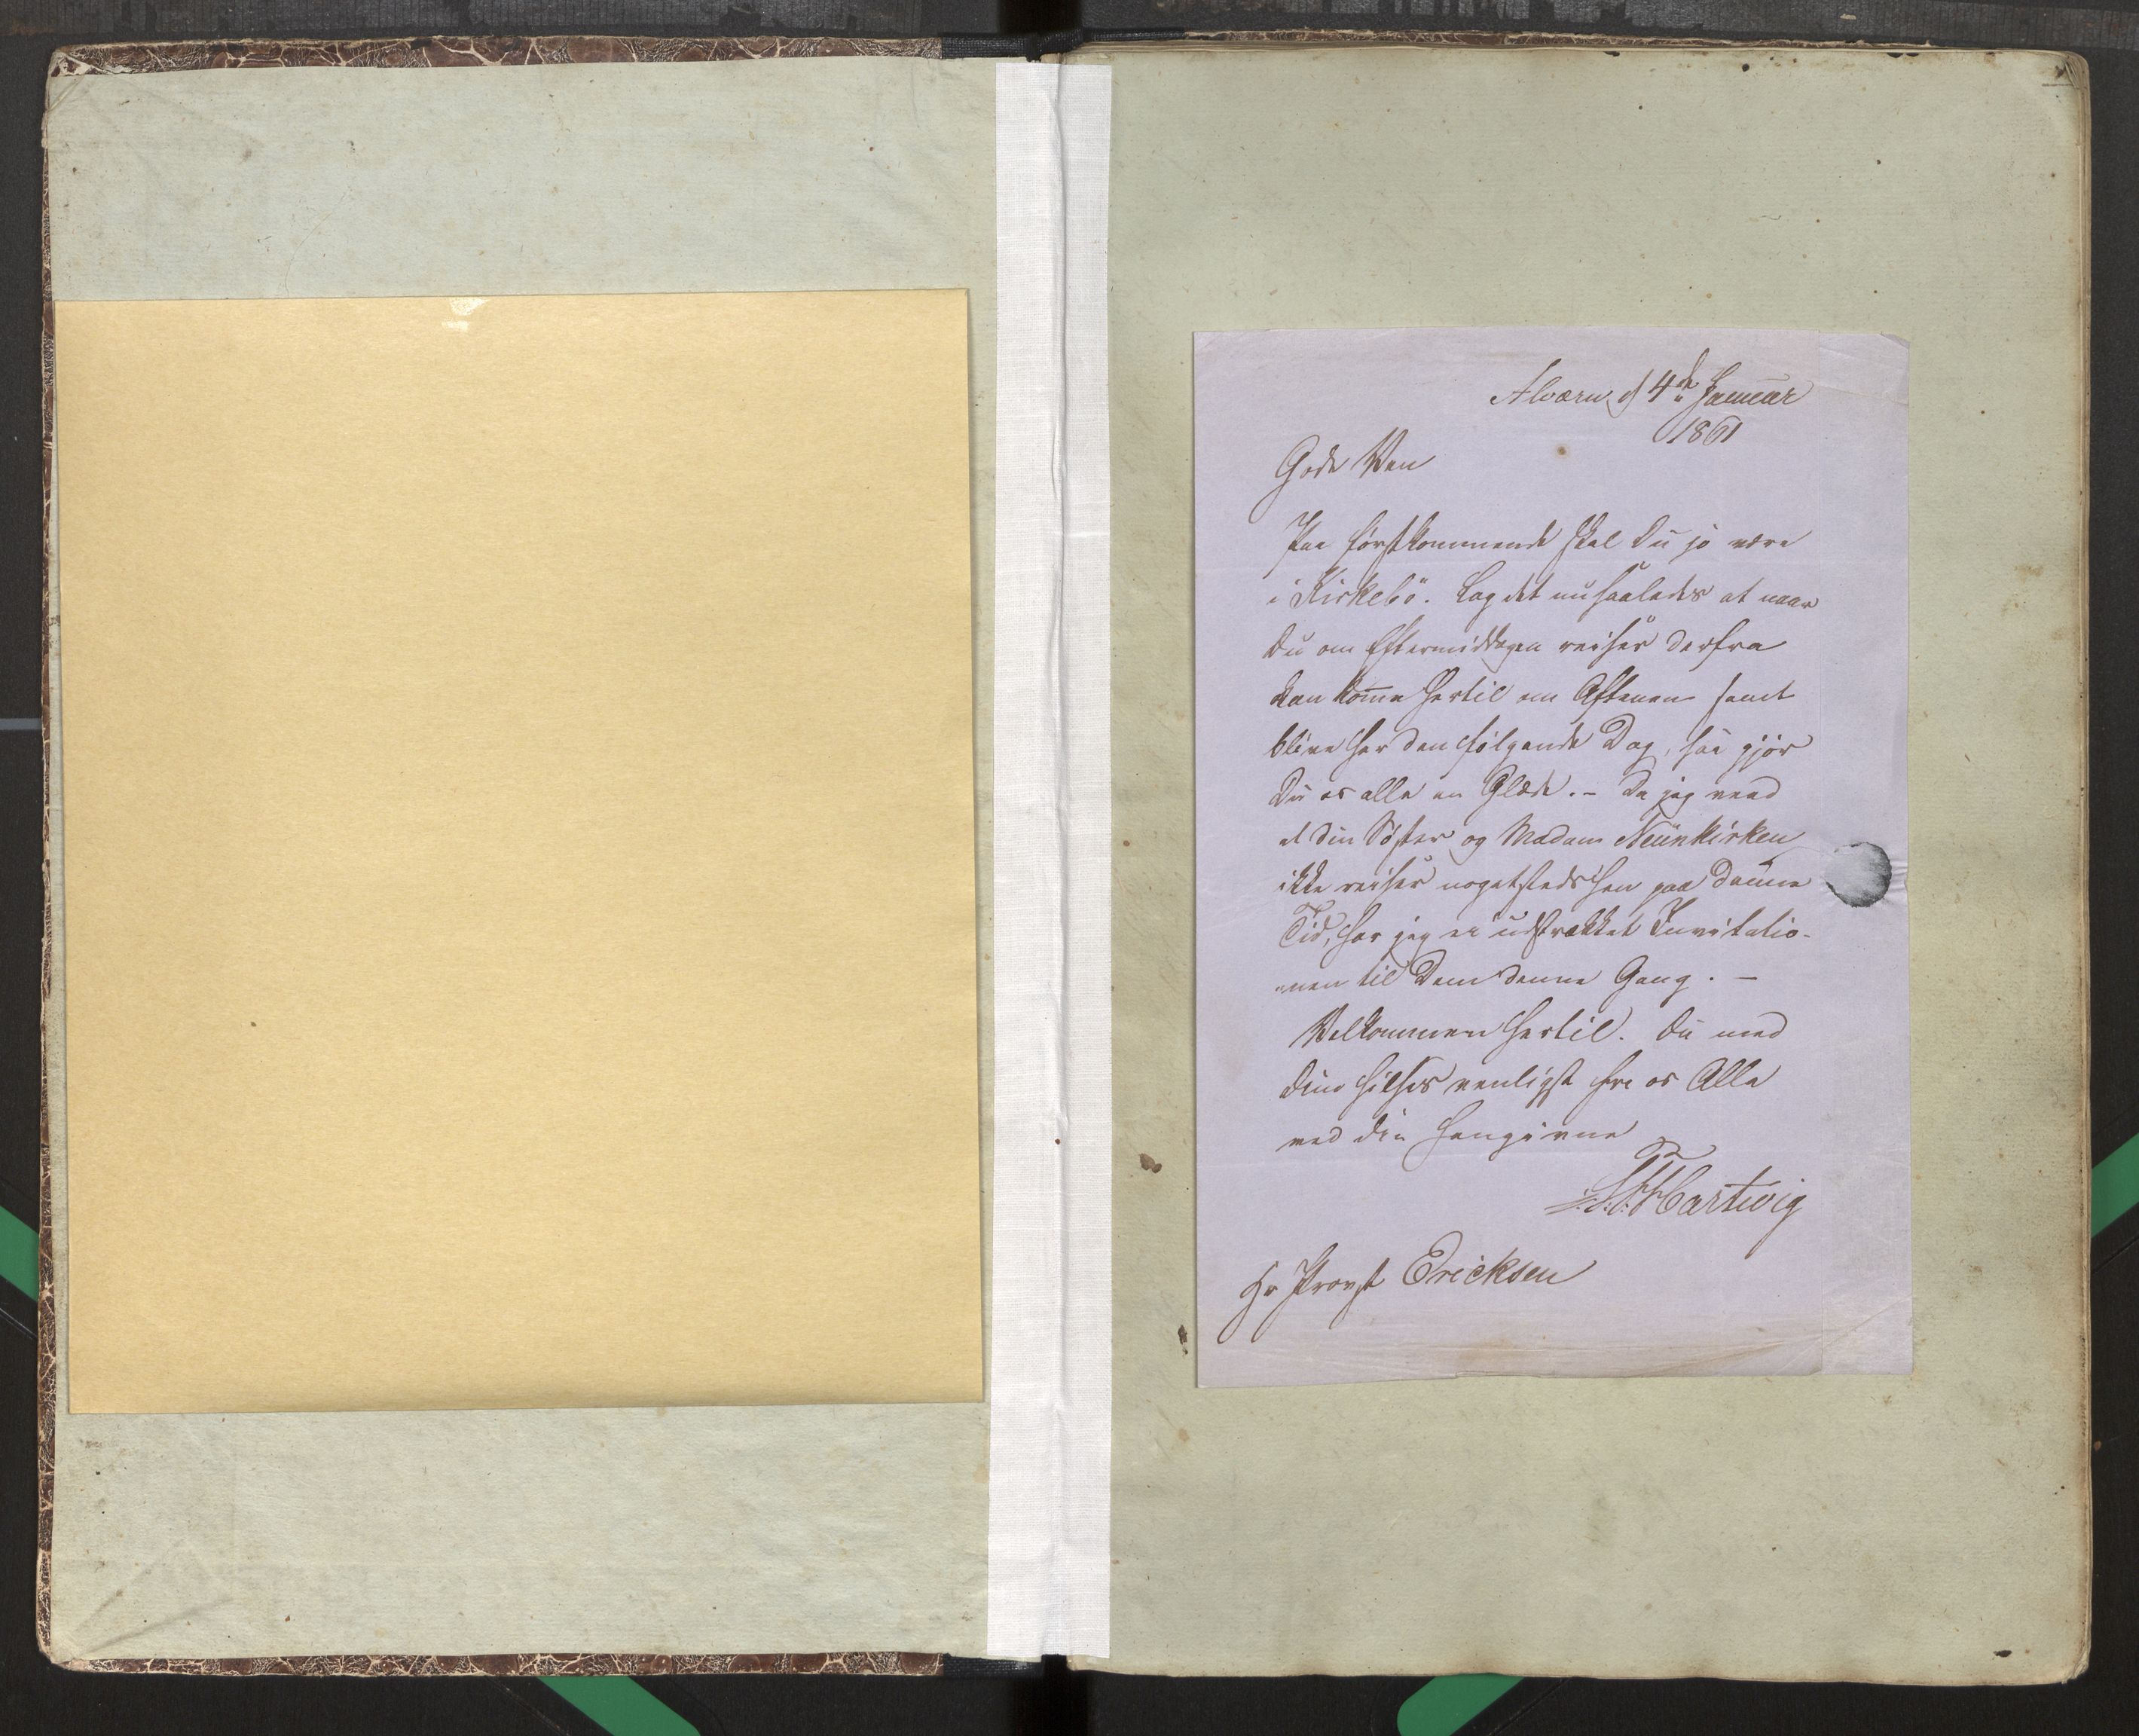 Alværn d 4de Januar
1861
Gode Ven
Paa førstkommende skal Du jo være
i Kirkebö. Lag det nu saaledes at naar
Du om Eftermiddagen reiser derfra
kan kom̅e hertil om Aftenen samt
blive her den følgende Dag, saa gjör
Du os alle en Glæde. – Da jeg veed
at din Søster og Madam Neünkirken
ikke reiser nogetsteds hen paa denne
Tid, har jeg ei udstrækket Invitatio-
nen til Dem denne Gang. –
Velkommen hertil. Du med
Dine hilses venligst fra os Alle
ved din hengivne
Hartwig
Hr Provst Ericksen